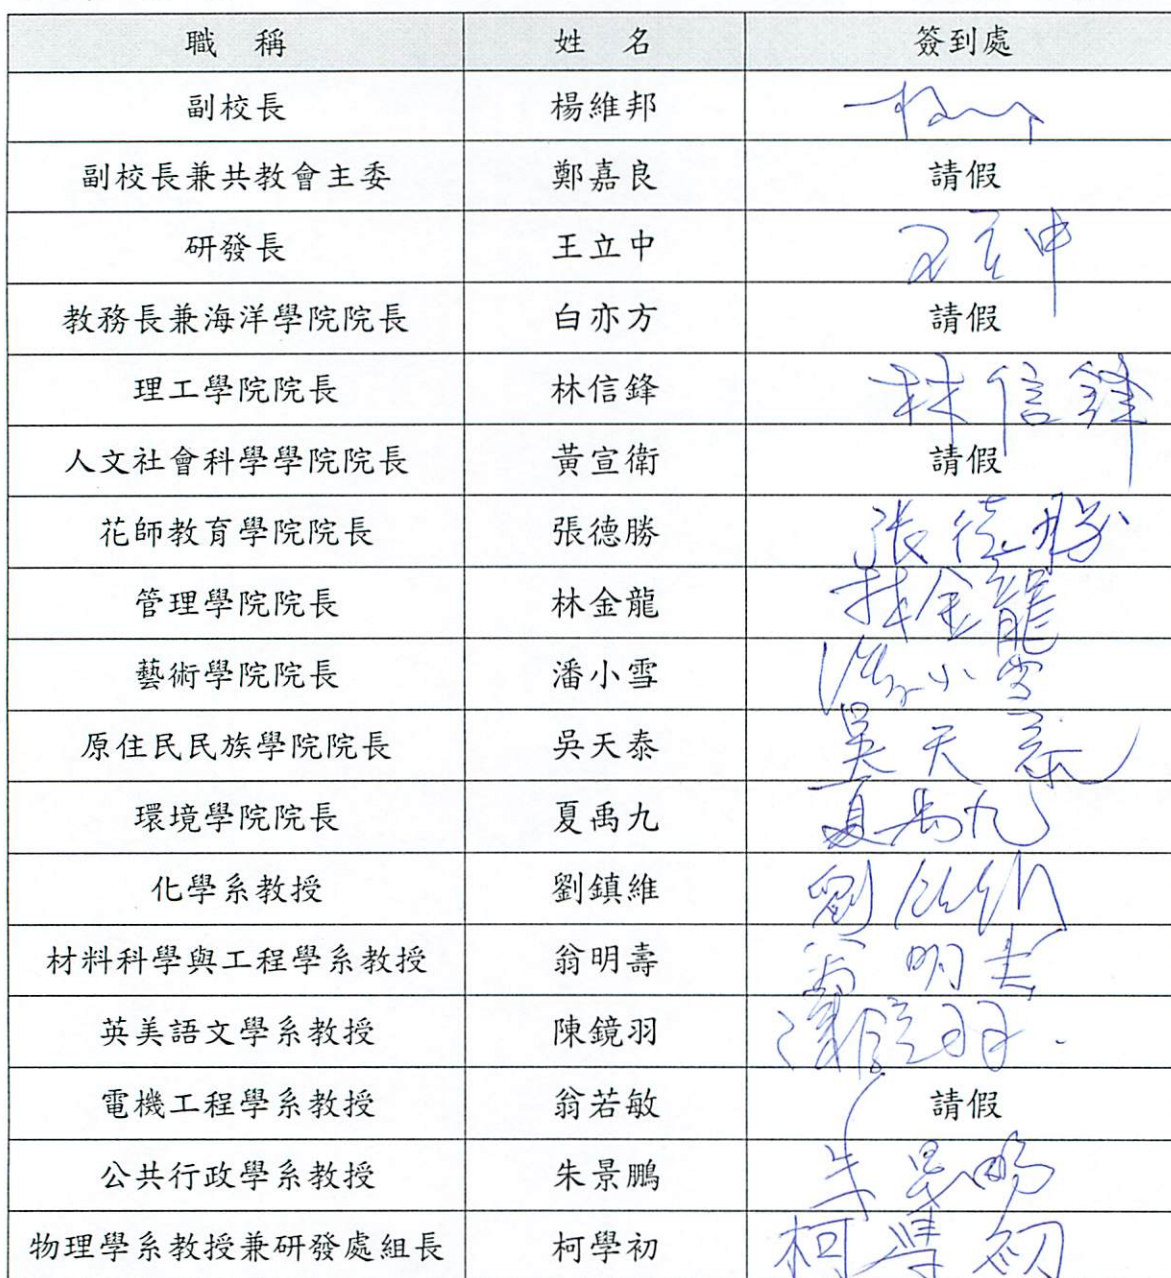 職 稱 姓 名 簽到處
副校長 楊維邦
副校長兼共教會主委 鄭嘉良 請假
研發長 王立中 王立中
教務長兼海洋學院院長 白亦方 請假
理工學院院長 林信鋒 林信鋒
人文社會科學學院院長 黃宣衛 請假
花師教育學院院長 張德勝 張德勝
管理學院院長 林金龍 林金龍
藝術學院院長 潘小雪 潘小雪
原住民民族學院院長 吳天泰 吳天泰
環境學院院長 夏禹九 夏禹九
化學系教授 劉鎮維 劉
材料科學與工程學系教授 翁明壽 翁明壽
英美語文學系教授 陳鏡羽 陳鏡羽
電機工程學系教授 翁若敏 請假
公共行政學系教授 朱景鵬 朱景鵬
物理學系教授兼研發處組長 柯學初 柯學初